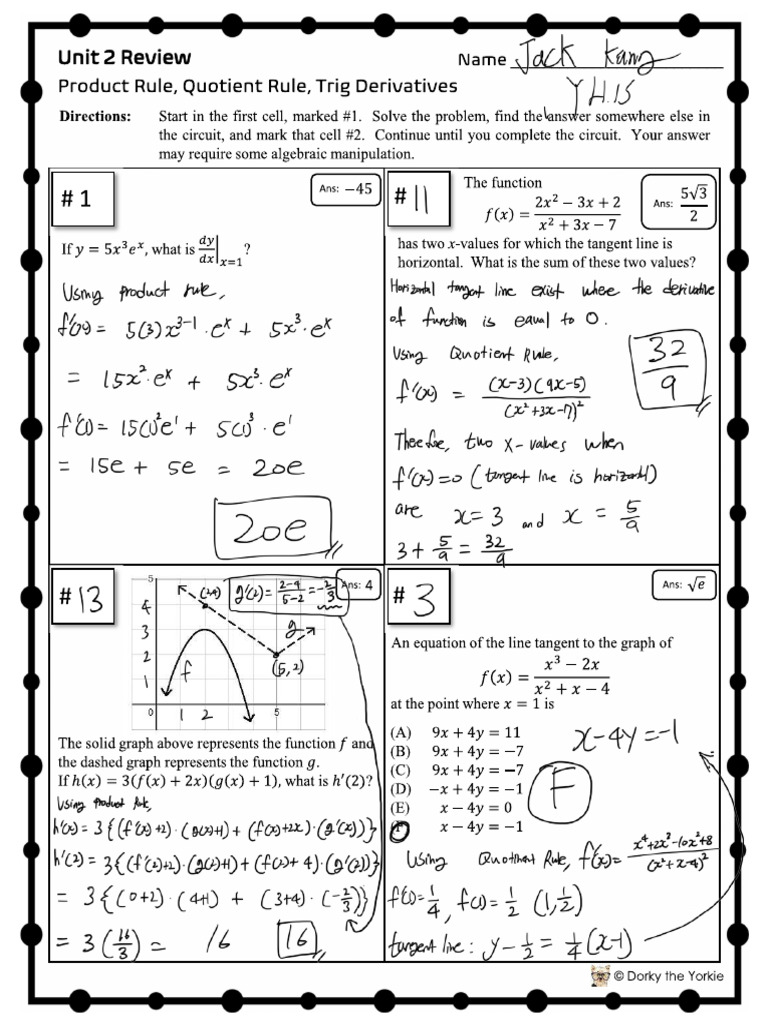 Unit 2 Review
Name Jack Kang
Product Rule, Quotient Rule, Trig Derivatives
YH.15
Directions: Start in the first cell, marked #1. Solve the problem, find the answer somewhere else in
the circuit, and mark that cell #2. Continue until you complete the circuit. Your answer
may require some algebraic manipulation.
# 1
Ans: −45
If y = 5x³eˣ, what is dy/dx|ₓ₌₁?
Using product rule,
f'(x) = 5(3)x³⁻¹·eˣ + 5x³·eˣ
= 15x²·eˣ + 5x³·eˣ
f'(1) = 15(1)²e¹ + 5(1)³·e¹
= 15e + 5e = 20e
20e
# 11
The function
Ans: 5√3/2
f(x) = (2x² − 3x + 2)/(x² + 3x − 7)
has two x-values for which the tangent line is
horizontal. What is the sum of these two values?
Horizontal tangent line exist where the derivative
of function is equal to 0.
Using Quotient Rule,
32/9
f'(x) = (x-3)(9x-5)/(x²+3x-7)²
Therefore, two x-values when
f'(x)=0 (tangent line is horizontal)
are x=3 and x = 5/9
3 + 5/9 = 32/9
# 13
Ans: 4
g'(2) = (2-4)/(5-2) = -2/3
(2,4)
(5,2)
f
g
5
4
3
2
1
0 1 2 5
The solid graph above represents the function f and
the dashed graph represents the function g.
If h(x) = 3(f(x) + 2x)(g(x) + 1), what is h′(2)?
Using Product Rule,
h'(x) = 3{(f'(x)+2)·(g(x)+1) + (f(x)+2x)·(g'(x))}
h'(2) = 3{(f'(2)+2)·(g(2)+1) + (f(2)+4)·(g'(2))}
= 3{(0+2)·(4+1) + (3+4)·(-2/3)}
= 3(16/3) = 16
16
# 3
Ans: √e
An equation of the line tangent to the graph of
f(x) = (x³ − 2x)/(x² + x − 4)
at the point where x = 1 is
(A) 9x + 4y = 11
(B) 9x + 4y = −7
(C) 9x + 4y = −7
(D) −x + 4y = −1
(E) x − 4y = 0
F x − 4y = −1
x-4y=-1
F
Using Quotient Rule, f'(x) = (x⁴+2x³-10x²+8)/(x²+x-4)²
f'(1) = 1/4, f(1) = 1/2 (1, 1/2)
tangent line: y - 1/2 = 1/4(x-1)
© Dorky the Yorkie